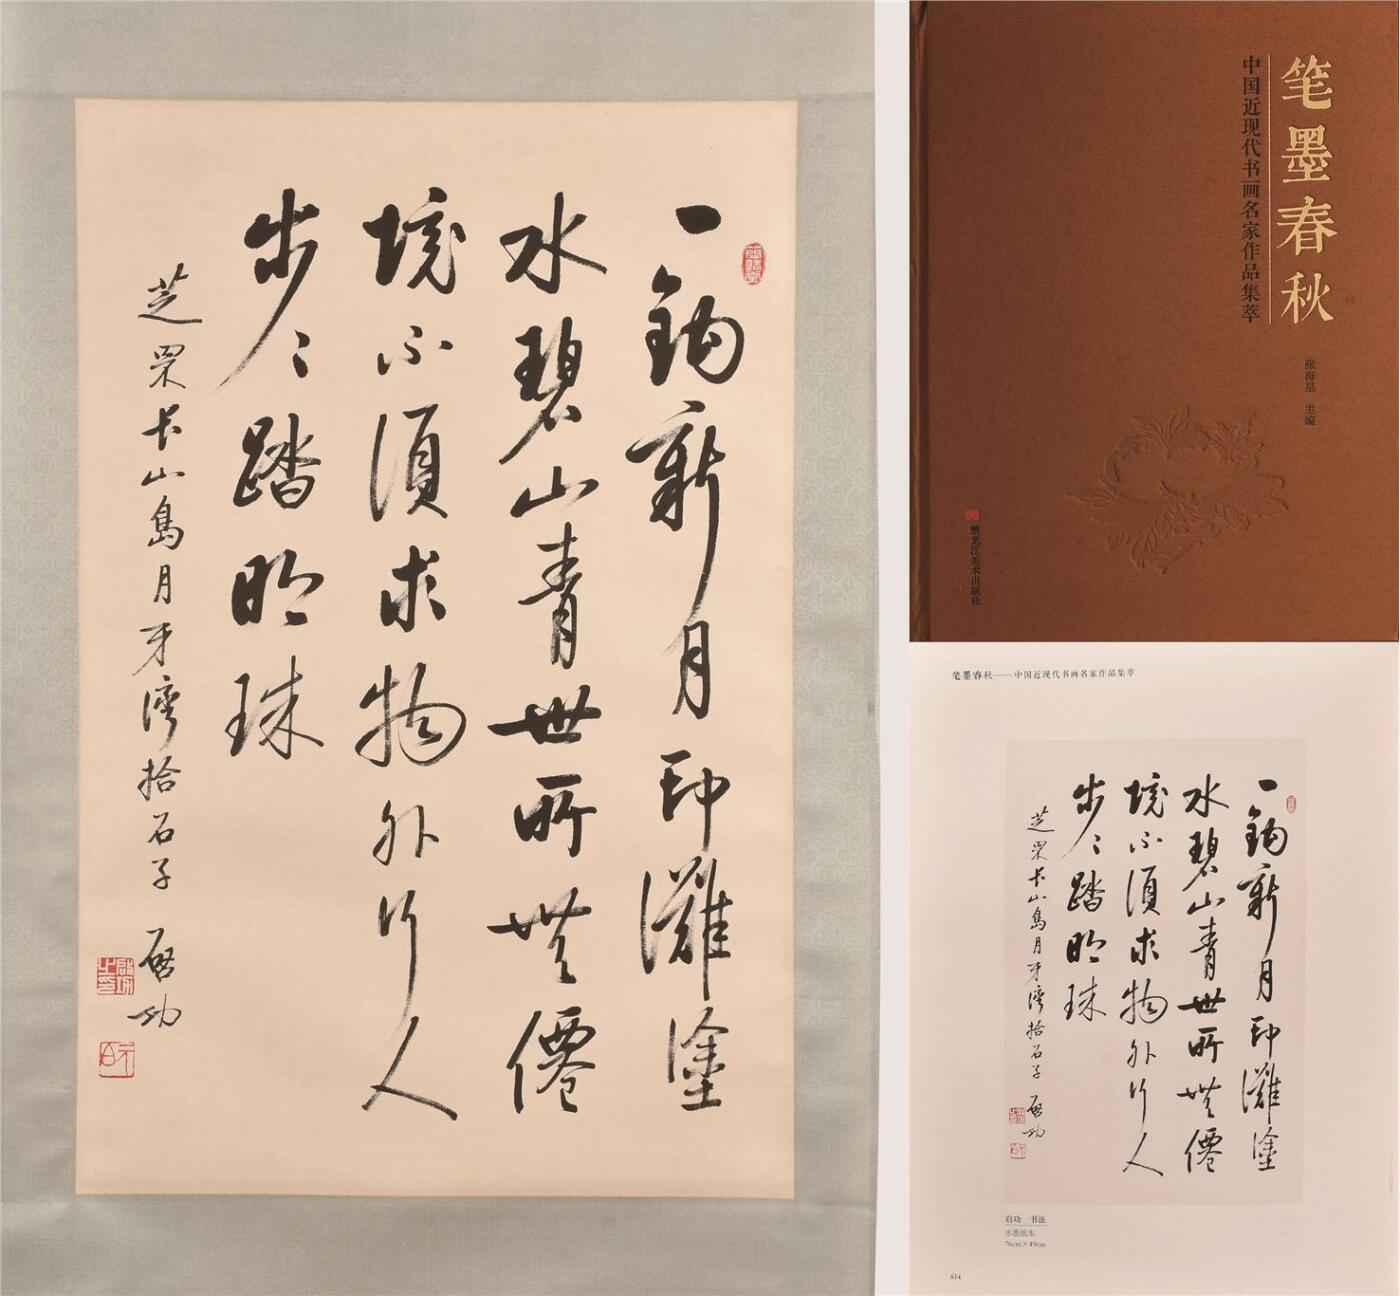 一鈎新月印灘塗
水碧山青世所無僊
境不須求物外行人
步々踏明珠
芝罘长山島月牙灣拾石子 啓功
啟功之印
笔墨春秋
中国近现代书画名家作品集萃
张海星 主编
黑龙江美术出版社
笔墨春秋——中国近现代书画名家作品集萃
一鈎新月印灘塗
水碧山青世所無僊
境不須求物外行人
步々踏明珠
芝罘长山島月牙灣拾石子 啓功
启功 书法
水墨纸本
76cm×49cm
614